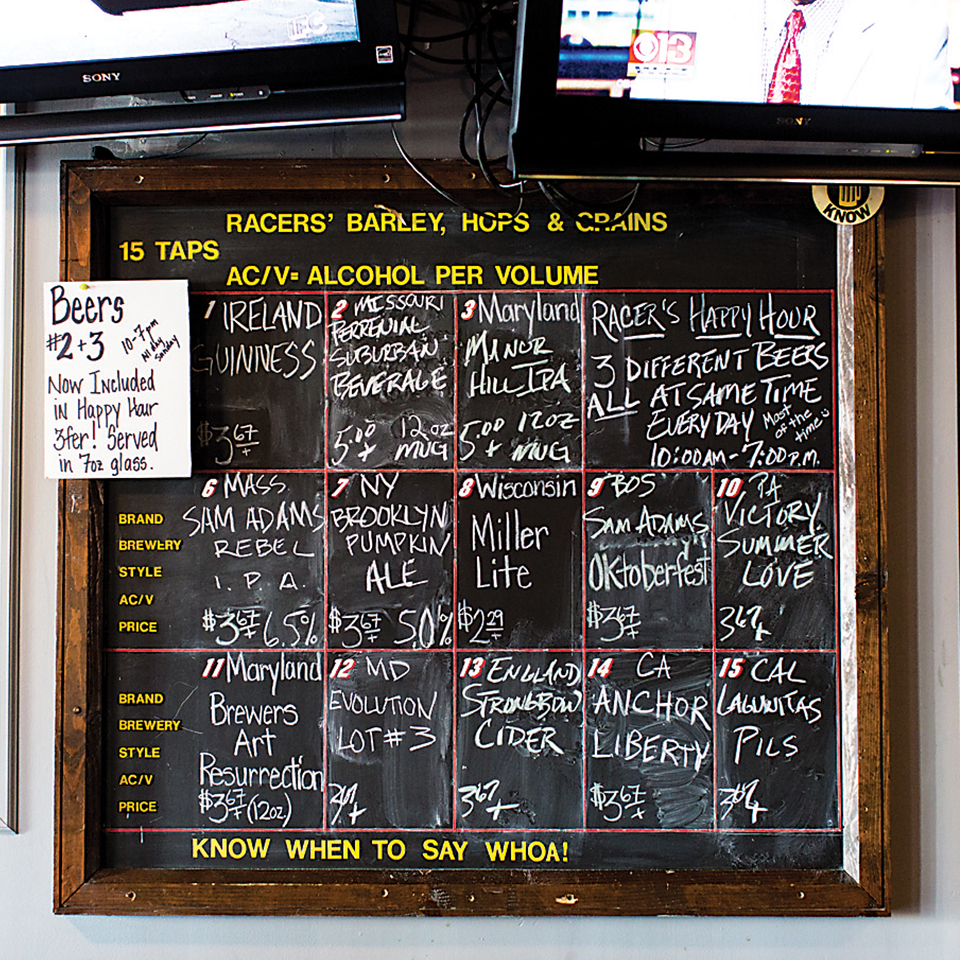 IFC
SONY
CBS 13
SONY
KNOW
RACERS' BARLEY, HOPS & GRAINS
15 TAPS
AC/V= ALCOHOL PER VOLUME
Beers
#2+3
10-7pm
All day
Sunday
Now Included
in Happy Hour
3fer! Served
in 7oz glass.
1 IRELAND
GUINNESS
$3.67+
2 MISSOURI
PERRENIAL
SUBURBAN
BEVERAGE
5.00+ 12oz
MUG
3 Maryland
MANOR
HILL IPA
5.00+ 12oz
MUG
RACER'S HAPPY HOUR
3 DIFFERENT BEERS
ALL AT SAME TIME
EVERYDAY Most of the time
10:00AM-7:00P.M.
BRAND
BREWERY
STYLE
AC/V
PRICE
6 MASS.
SAM ADAMS
REBEL
I.P.A.
$3.67+ 6.5%
7 NY
BROOKLYN
PUMPKIN
ALE
$3.67+ 5.0%
8 Wisconsin
Miller
Lite
$2.29+
9 BOS
SAM ADAMS
OKtoberfest
$3.67+
10 PA
VICTORY
SUMMER
LOVE
3.67+
BRAND
BREWERY
STYLE
AC/V
PRICE
11 Maryland
Brewers
Art
Resurrection
$3.67+ (12oz)
12 MD
EVOLUTION
LOT #3
3.67+
13 ENGLAND
STRONGBOW
CIDER
3.67+
14 CA
ANCHOR
LIBERTY
$3.67+
15 CAL
LAGUNITAS
PILS
3.67+
KNOW WHEN TO SAY WHOA!